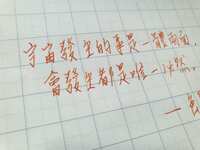 宇宙發生的事是一體兩面,
會發生都是唯一必然。
一